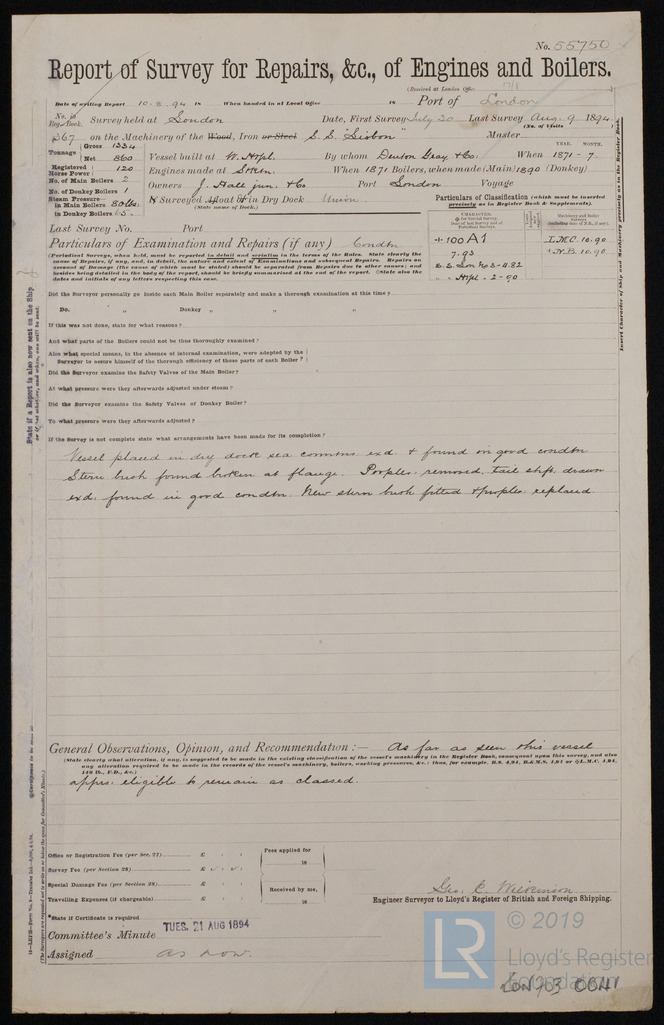 No. 55750
Report of Survey for Repairs, &c., of Engines and Boilers.
(Received at London Office 17/8
Date of writing Report 10.8.94 18 When handed in at Local Office 18 Port of London
No. in Reg. Book. Survey held at London Date, First Survey July 20 Last Survey Aug. 9 1894
(No. of Visits )
267 on the Machinery of the Wood, Iron or Steel S.S. "Lisbon" Master
Tonnage Gross 1334
Net 860 Vessel built at W. Htpl. By whom Denton Gray & Co: When 1871 - 7
YEAR. MONTH.
Registered Horse Power 120 Engines made at When 1871 Boilers, when made (Main) 1890 (Donkey)
No. of Main Boilers 2
No. of Donkey Boilers 1 Owners J. Hall jun. & Co Port London Voyage
Steam Pressure—
in Main Boilers 80 lbs.
in Donkey Boilers If Surveyed Afloat or in Dry Dock Union
(State name of Dock.)
Particulars of Classification (which must be inserted precisely as in Register Book & Supplements).
Last Survey No. Port
Particulars of Examination and Repairs (if any) Condtn
(Periodical Surveys, when held, must be reported in detail and seriatim in the terms of the Rules. State clearly the
cause of Repairs, if any, and, in detail, the nature and extent of Examinations and subsequent Repairs. Repairs on
account of Damage (the cause of which must be stated) should be separated from Repairs due to other causes; and
besides being detailed in the body of the report, should be briefly summarised at the end of the report. (State also the
dates and initials of any letters respecting this case.
CHARACTER.
Machinery and Boiler Surveys
+ 100 A1 L.M.C. 10.90
7.93 + N.B. 10.90
S.S. Lon No 3 - 4.82
" - Htpl - 2 - 90
Insert Character of Ship and Machinery precisely as in the Register Book.
Did the Surveyor personally go inside each Main Boiler separately and make a thorough examination at this time?
Do. " Donkey " " "
If this was not done, state for what reasons?
And what parts of the Boilers could not be thus thoroughly examined?
Also what special means, in the absence of internal examination, were adopted by the
Surveyor to assure himself of the thorough efficiency of those parts of each Boiler?
Did the Surveyor examine the Safety Valves of the Main Boiler?
At what pressure were they afterwards adjusted under steam?
Did the Surveyor examine the Safety Valves of Donkey Boiler?
To what pressure were they afterwards adjusted?
If the Survey is not complete state what arrangements have been made for its completion?
Vessel placed in dry dock sea connns. exd. & found in good condtn
Stern bush found broken at flange. Propler: removed. tail shft: drawn
exd. found in good condtn. New stern bush fitted & propler: replaced.
State if a Report is also now sent on the Ship
General Observations, Opinion, and Recommendation:— As far as seen this vessel
(State clearly what alteration, if any, is suggested to be made in the existing classification of the vessel's machinery in the Register Book, consequent upon this survey, and also
any alteration required to be made in the records of the vessel's machinery, boilers, working pressures, &c.: thus, for example, B.S. 4,94, B.&M.S. 1,94 or L.M.C. 1,94,
140 lb., F.D., &c.)
apprs: eligible to remain as classed.
Office or Registration Fee (per Sec. 27) £ : :
Survey Fee (per Section 28) £ : :
Special Damage Fee (per Section 28) £ : :
Travelling Expenses (if chargeable) £ : :
Fees applied for
18
Received by me,
18
Geo. C. Wilkinson
Engineer Surveyor to Lloyd's Register of British and Foreign Shipping.
*State if Certificate is required
Committee's Minute TUES. 21 AUG 1894
Assigned as now.
LR
© 2019
Lloyd's Register
Foundation
LON 703 0041